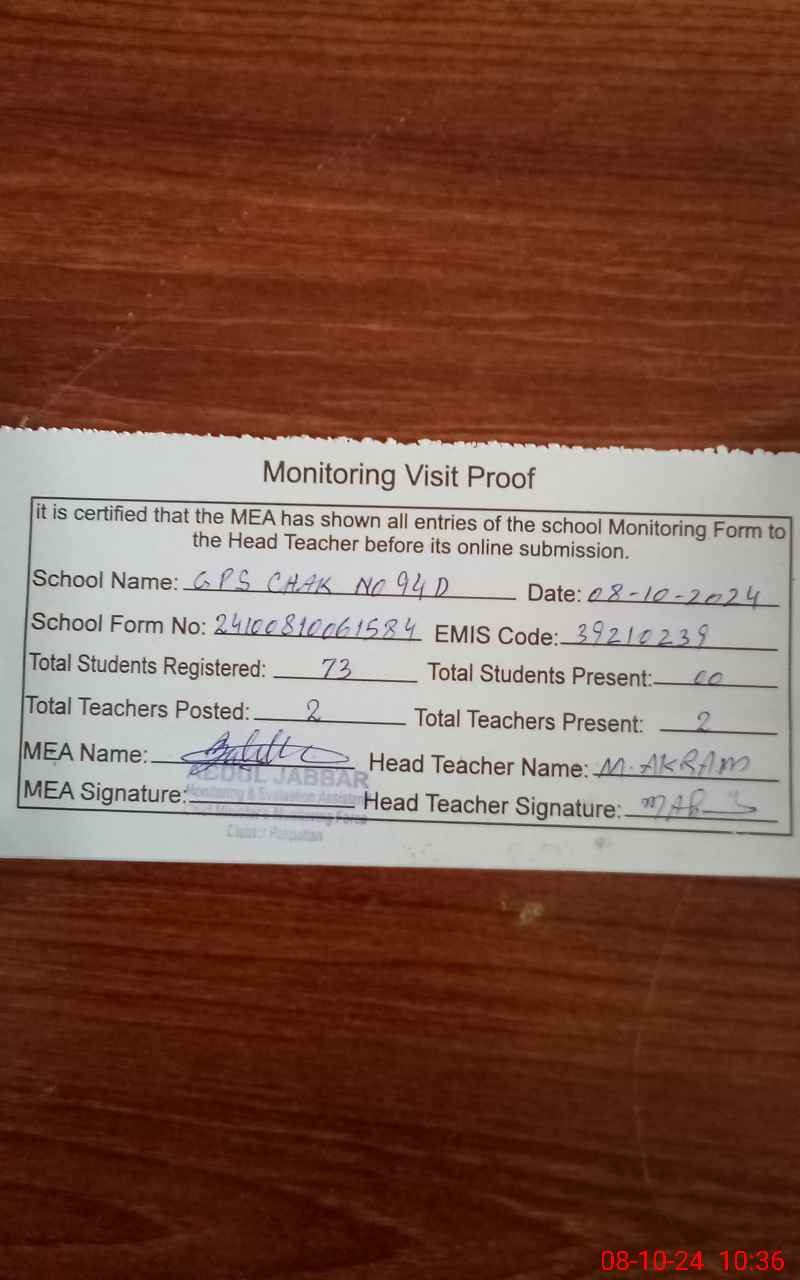 Monitoring Visit Proof
it is certified that the MEA has shown all entries of the school Monitoring Form to
the Head Teacher before its online submission.
School Name: GPS CHAK NO 94 D Date: 08-10-2024
School Form No: 24100810061584 EMIS Code: 39210239
Total Students Registered: 73 Total Students Present: 00
Total Teachers Posted: 2 Total Teachers Present: 2
MEA Name: Head Teacher Name: M. AKRAM
ABDUL JABBAR
MEA Signature: Monitoring & Evaluation Assistant Head Teacher Signature:
Chief Minister's Monitoring Force
District Pakpattan
08-10-24 10:36